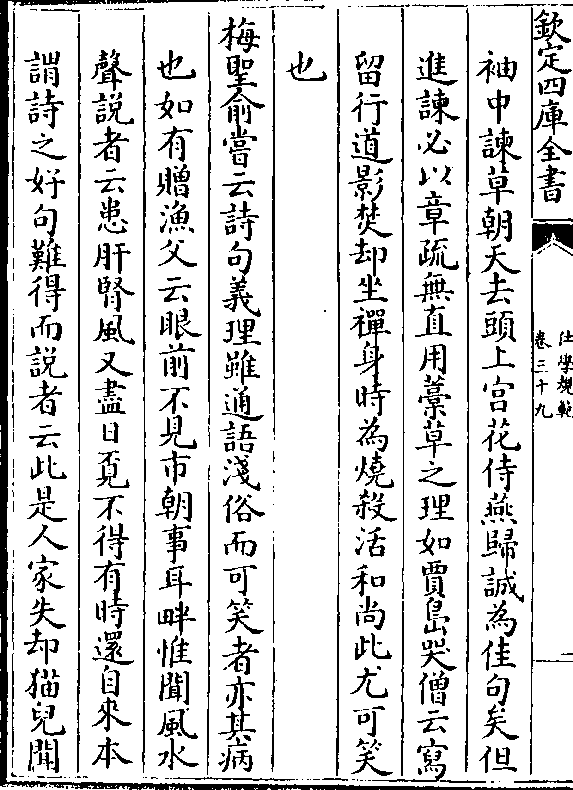 欽定四庫全書
仕學規範
卷三十九
一
袖中諫草朝天去頭上宫花侍燕歸誠為佳句矣但
進諫必以章疏無直用藁草之理如賈島哭僧云寫
留行道影焚却坐禪身時為燒殺活和尚此尤可笑
也
梅聖俞嘗云詩句義理雖通語淺俗而可笑者亦其病
也如有贈漁父云眼前不見市朝事耳畔惟聞風水
聲說者云患肝腎風又盡日覔不得有時還自來本
謂詩之好句難得而說者云此是人家失却猫兒聞